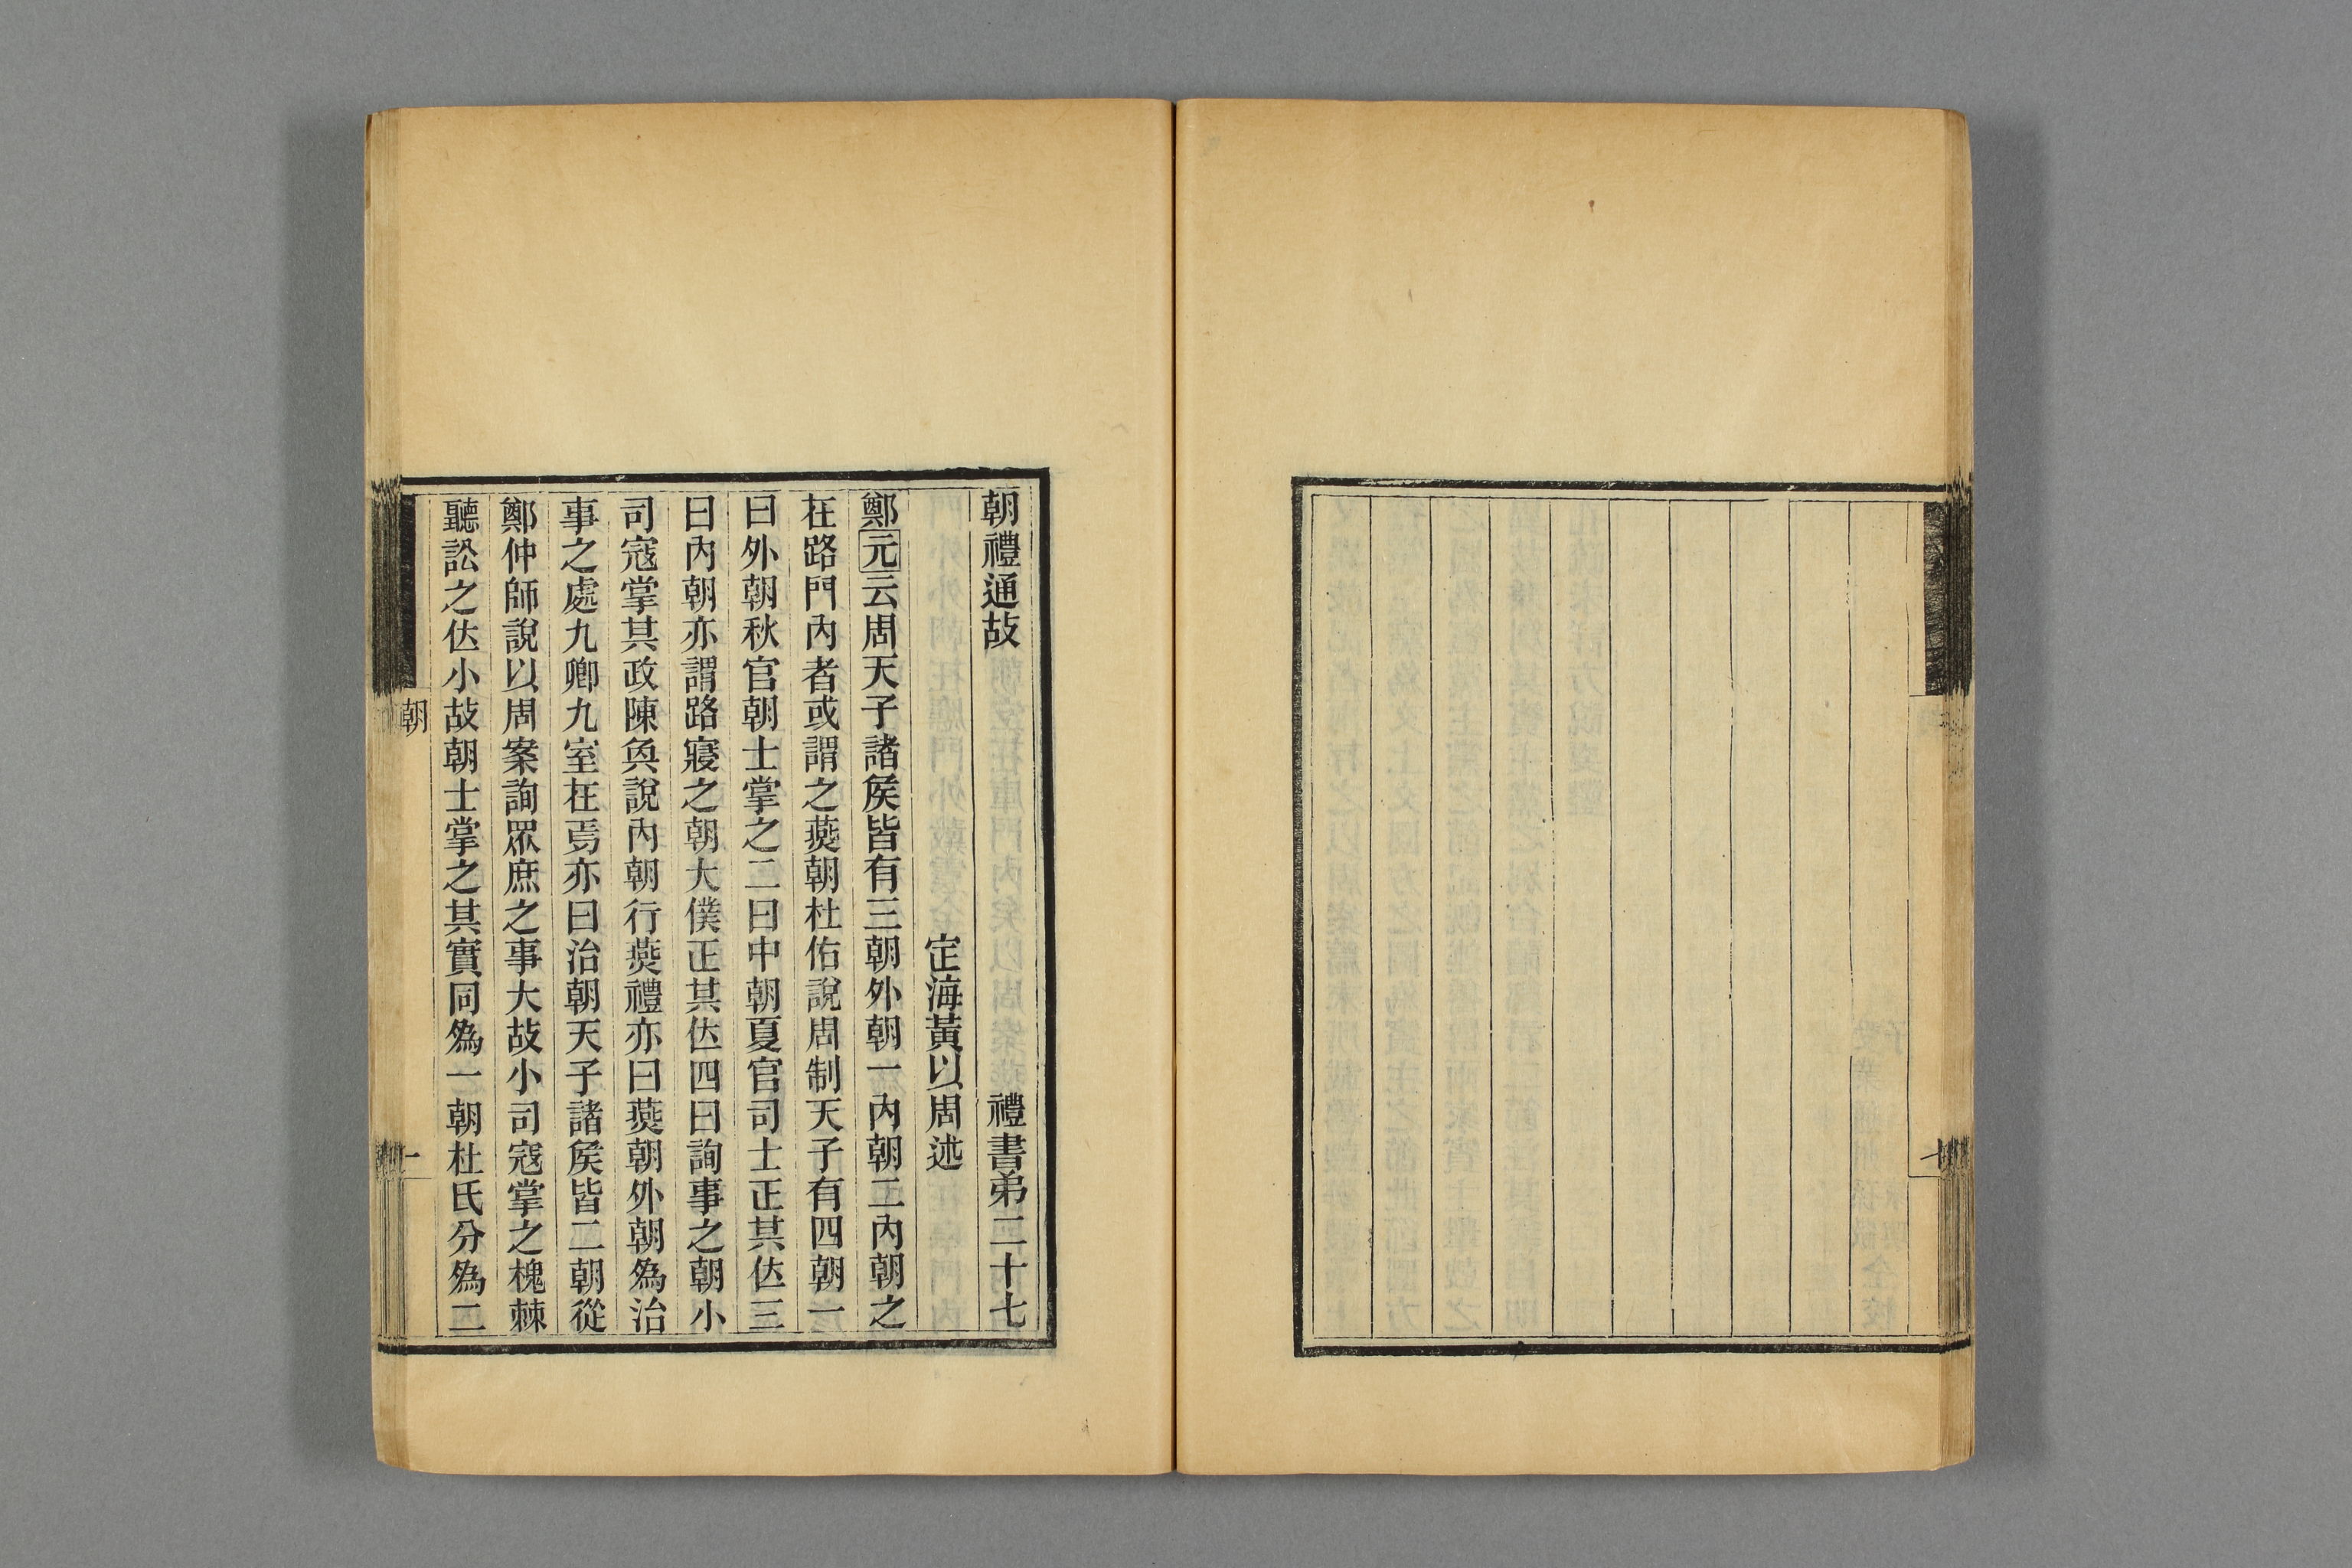 朝禮通故 禮書弟二十七
定海黃以周述
鄭元云周天子諸矦皆有三朝外朝一內朝二內朝之
在路門內者或謂之燕朝杜佑說周制天子有四朝一
曰外朝秋官朝士掌之二曰中朝夏官司士正其位三
曰內朝亦謂路寢之朝大僕正其位四曰詢事之朝小
司寇掌其政陳奐說內朝行燕禮亦曰燕朝外朝爲治
事之處九卿九室在焉亦曰治朝天子諸矦皆二朝從
鄭仲師說以周案詢眾庶之事大故小司寇掌之槐棘
聽訟之位小故朝士掌之其實同爲一朝杜氏分爲二
朝
一